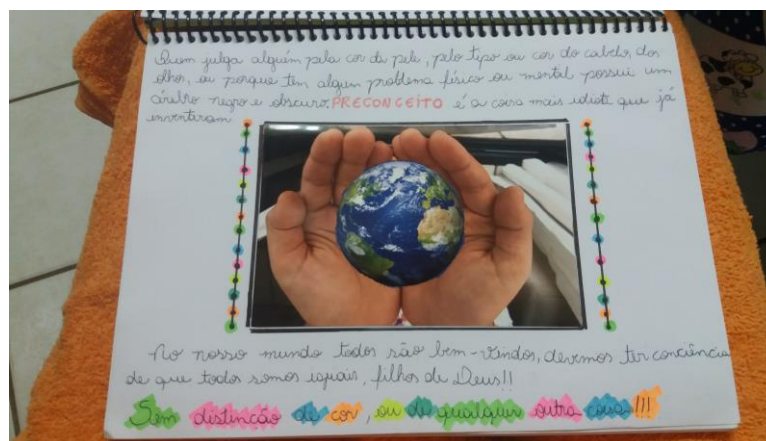 Quem julga alguém pela cor da pele, pelo tipo ou cor do cabelo, dos
olhos, ou porque tem algum problema físico ou mental possui um
cérebro negro e obscuro. PRECONCEITO é a coisa mais idiota que já
inventaram
No nosso mundo todos são bem-vindos, devemos ter conciência
de que todos somos iguais, filhos de Deus!!
Sem distinção de cor, ou de qualquer outra coisa!!!